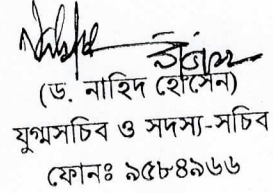 (ড. নাহিদ হোসেন)
যুগ্মসচিব ও সদস্য-সচিব
ফোনঃ ৯৫৮৪৯৬৬